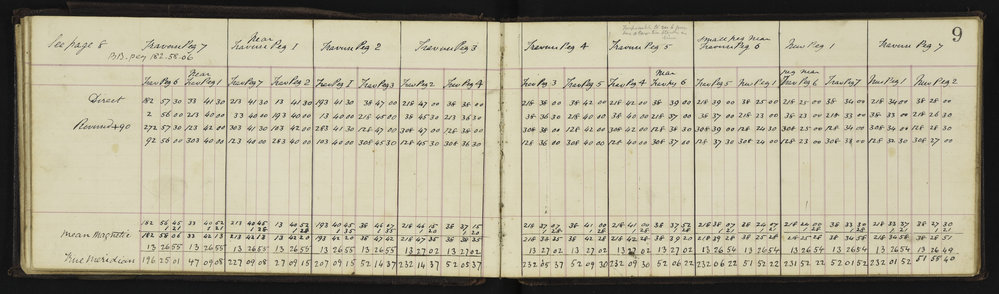 9
See page 8
BB. peg 182.58.06
Traverse Peg 7 Near Traverse Peg 1 Traverse Peg 2 Traverse Peg 3 Traverse Peg 4 Traverse Peg 5 small peg near Traverse Peg 6 New Peg 1 Traverse Peg 7
Trav Peg 6 Near Trav Peg 1 Trav Peg 7 Trav Peg 2 Trav Peg 1 Trav Peg 3 Trav Peg 2 Trav Peg 4 Trav Peg 3 Trav Peg 5 Trav Peg 4 Near Trav Peg 6 Trav Peg 5 New Peg 1 peg near Trav Peg 6 Trav Peg 7 New Peg 1 New Peg 2
Direct 182 57 30 33 41 30 213 41 30 13 41 30 193 41 30 38 47 00 218 47 00 38 38 00 218 38 00 38 42 00 218 42 00 38 39 00 218 39 00 38 25 00 218 25 00 38 34 00 218 34 00 38 28 00
2 56 00 213 40 00 33 40 00 193 40 00 13 40 00 218 45 00 38 45 30 213 36 30 38 36 00 218 40 00 38 40 00 218 37 00 38 37 00 218 23 00 38 23 00 218 33 00 38 33 00 218 26 30
Reversed 90 272 57 30 123 42 00 303 41 30 103 42 00 283 41 30 128 47 00 308 47 00 128 38 00 308 38 00 128 42 00 308 42 00 128 38 00 308 39 00 128 24 30 308 25 00 128 34 00 308 34 00 128 28 00
92 56 00 303 40 00 123 40 00 283 40 00 103 40 00 308 45 30 128 45 30 308 36 30 128 36 00 308 40 00 128 40 00 308 37 00 128 37 30 308 24 00 128 23 00 308 33 00 128 32 30 308 27 00
182 56 45 33 40 52 213 40 45 13 40 52 193 40 45 38 45 218 46 15 38 37 15 218 37 07 38 41 00 218 41 00 38 37 52 218 38 07 38 24 07 218 24 00 38 33 30 218 33 37 38 27 30
1 21 1 21 1 28 1 28 1 35 1 35 1 20 1 20
mean magnetic 182 58 06 33 42 13 213 42 13 13 42 20 193 42 20 38 47 42 218 47 35 38 38 35 218 38 35 38 42 28 218 42 28 38 39 20 218 39 28 38 25 28 218 25 28 38 34 58 218 34 58 38 28 51
13 26 55 13 26 55 13 26 55 13 26 55 13 26 55 13 26 55 13 27 02 13 27 02 13 27 02 13 27 02 13 27 02 13 27 02 13 26 54 13 26 54 13 26 54 13 26 54 13 26 54 13 26 49
True Meridian 196 25 01 47 09 08 227 09 08 27 09 15 207 09 15 52 14 37 232 14 37 52 05 37 232 05 37 52 09 30 232 09 30 52 06 22 232 06 22 51 52 22 231 52 22 52 01 52 232 01 52 51 55 40